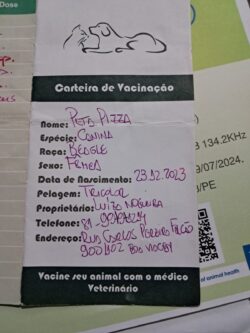 Dose
Carteira de Vacinação
Nome: Pets Pizza
Espécie: Canina
Raça: Beagle
Sexo: Fêmea
Data de Nascimento: 23.12.2023
Pelagem: Tricolor
Proprietário: Luizo Nogueira
Telefone: 81
Endereço: Rua Carlos Pereira Falcão
Boa Viagem
Vacine seu animal com o médico
Veterinário
134.2KHz
/07/2024.
/PE
of animal health